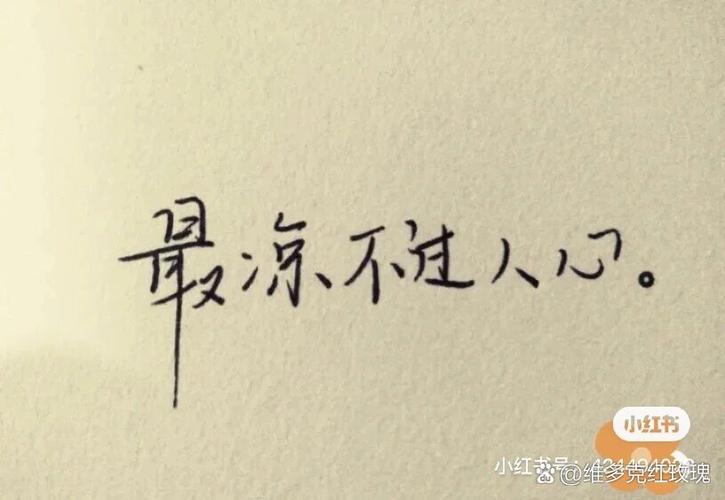 最凉不过人心。
小红书
小红书号:
@维多克红玫瑰